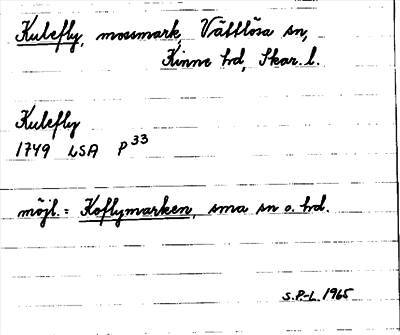 Kulefly, mossmark, Vättlösa sn,
Kinne hd, Skar. l.
Kulefly
1749 LSA P33
möjl. = Koflymarken, sma sn o. hd.
S.P-L. 1965